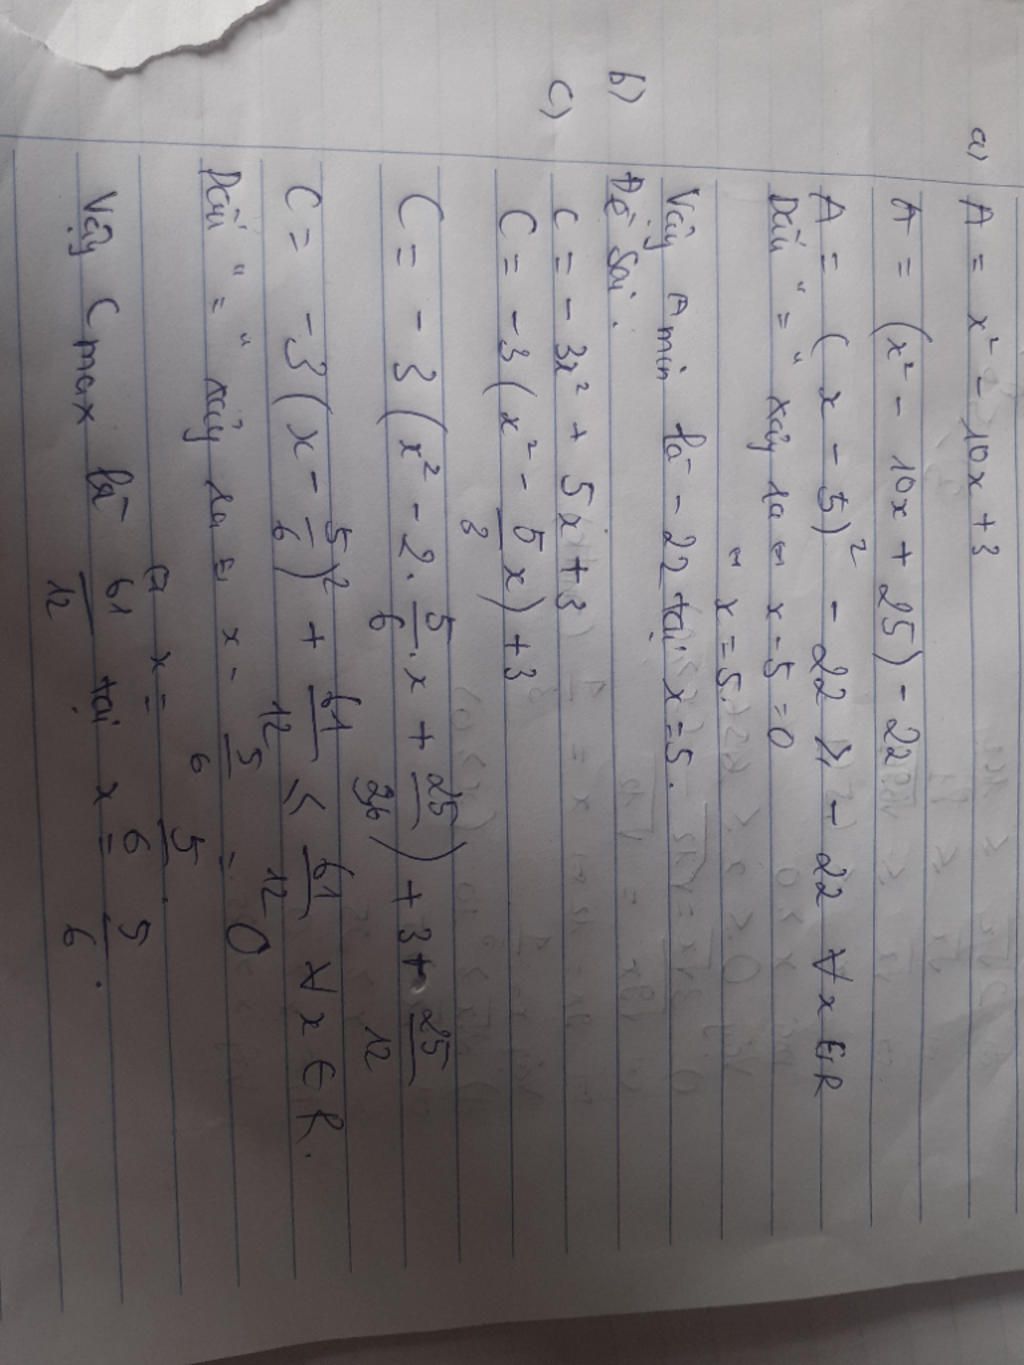 a) A = x² - 10x + 3
A = (x² - 10x + 25) - 22
A = (x - 5)² - 22 ≥ - 22 ∀ x ∈ R
Dấu "=" xảy ra ⇔ x - 5 = 0
⇔ x = 5.
Vậy A min là - 22 tại x = 5.
b) Đề sai.
c) C = - 3x² + 5x + 3
C = - 3 (x² - 5/3 x) + 3
C = - 3 (x² - 2. 5/6 . x + 25/36) + 3 + 25/12
C = - 3 (x - 5/6)² + 61/12 ≤ 61/12 ∀ x ∈ R.
Dấu "=" xảy ra ⇔ x - 5/6 = 0
⇔ x = 5/6.
Vậy C max là 61/12 tại x = 5/6.